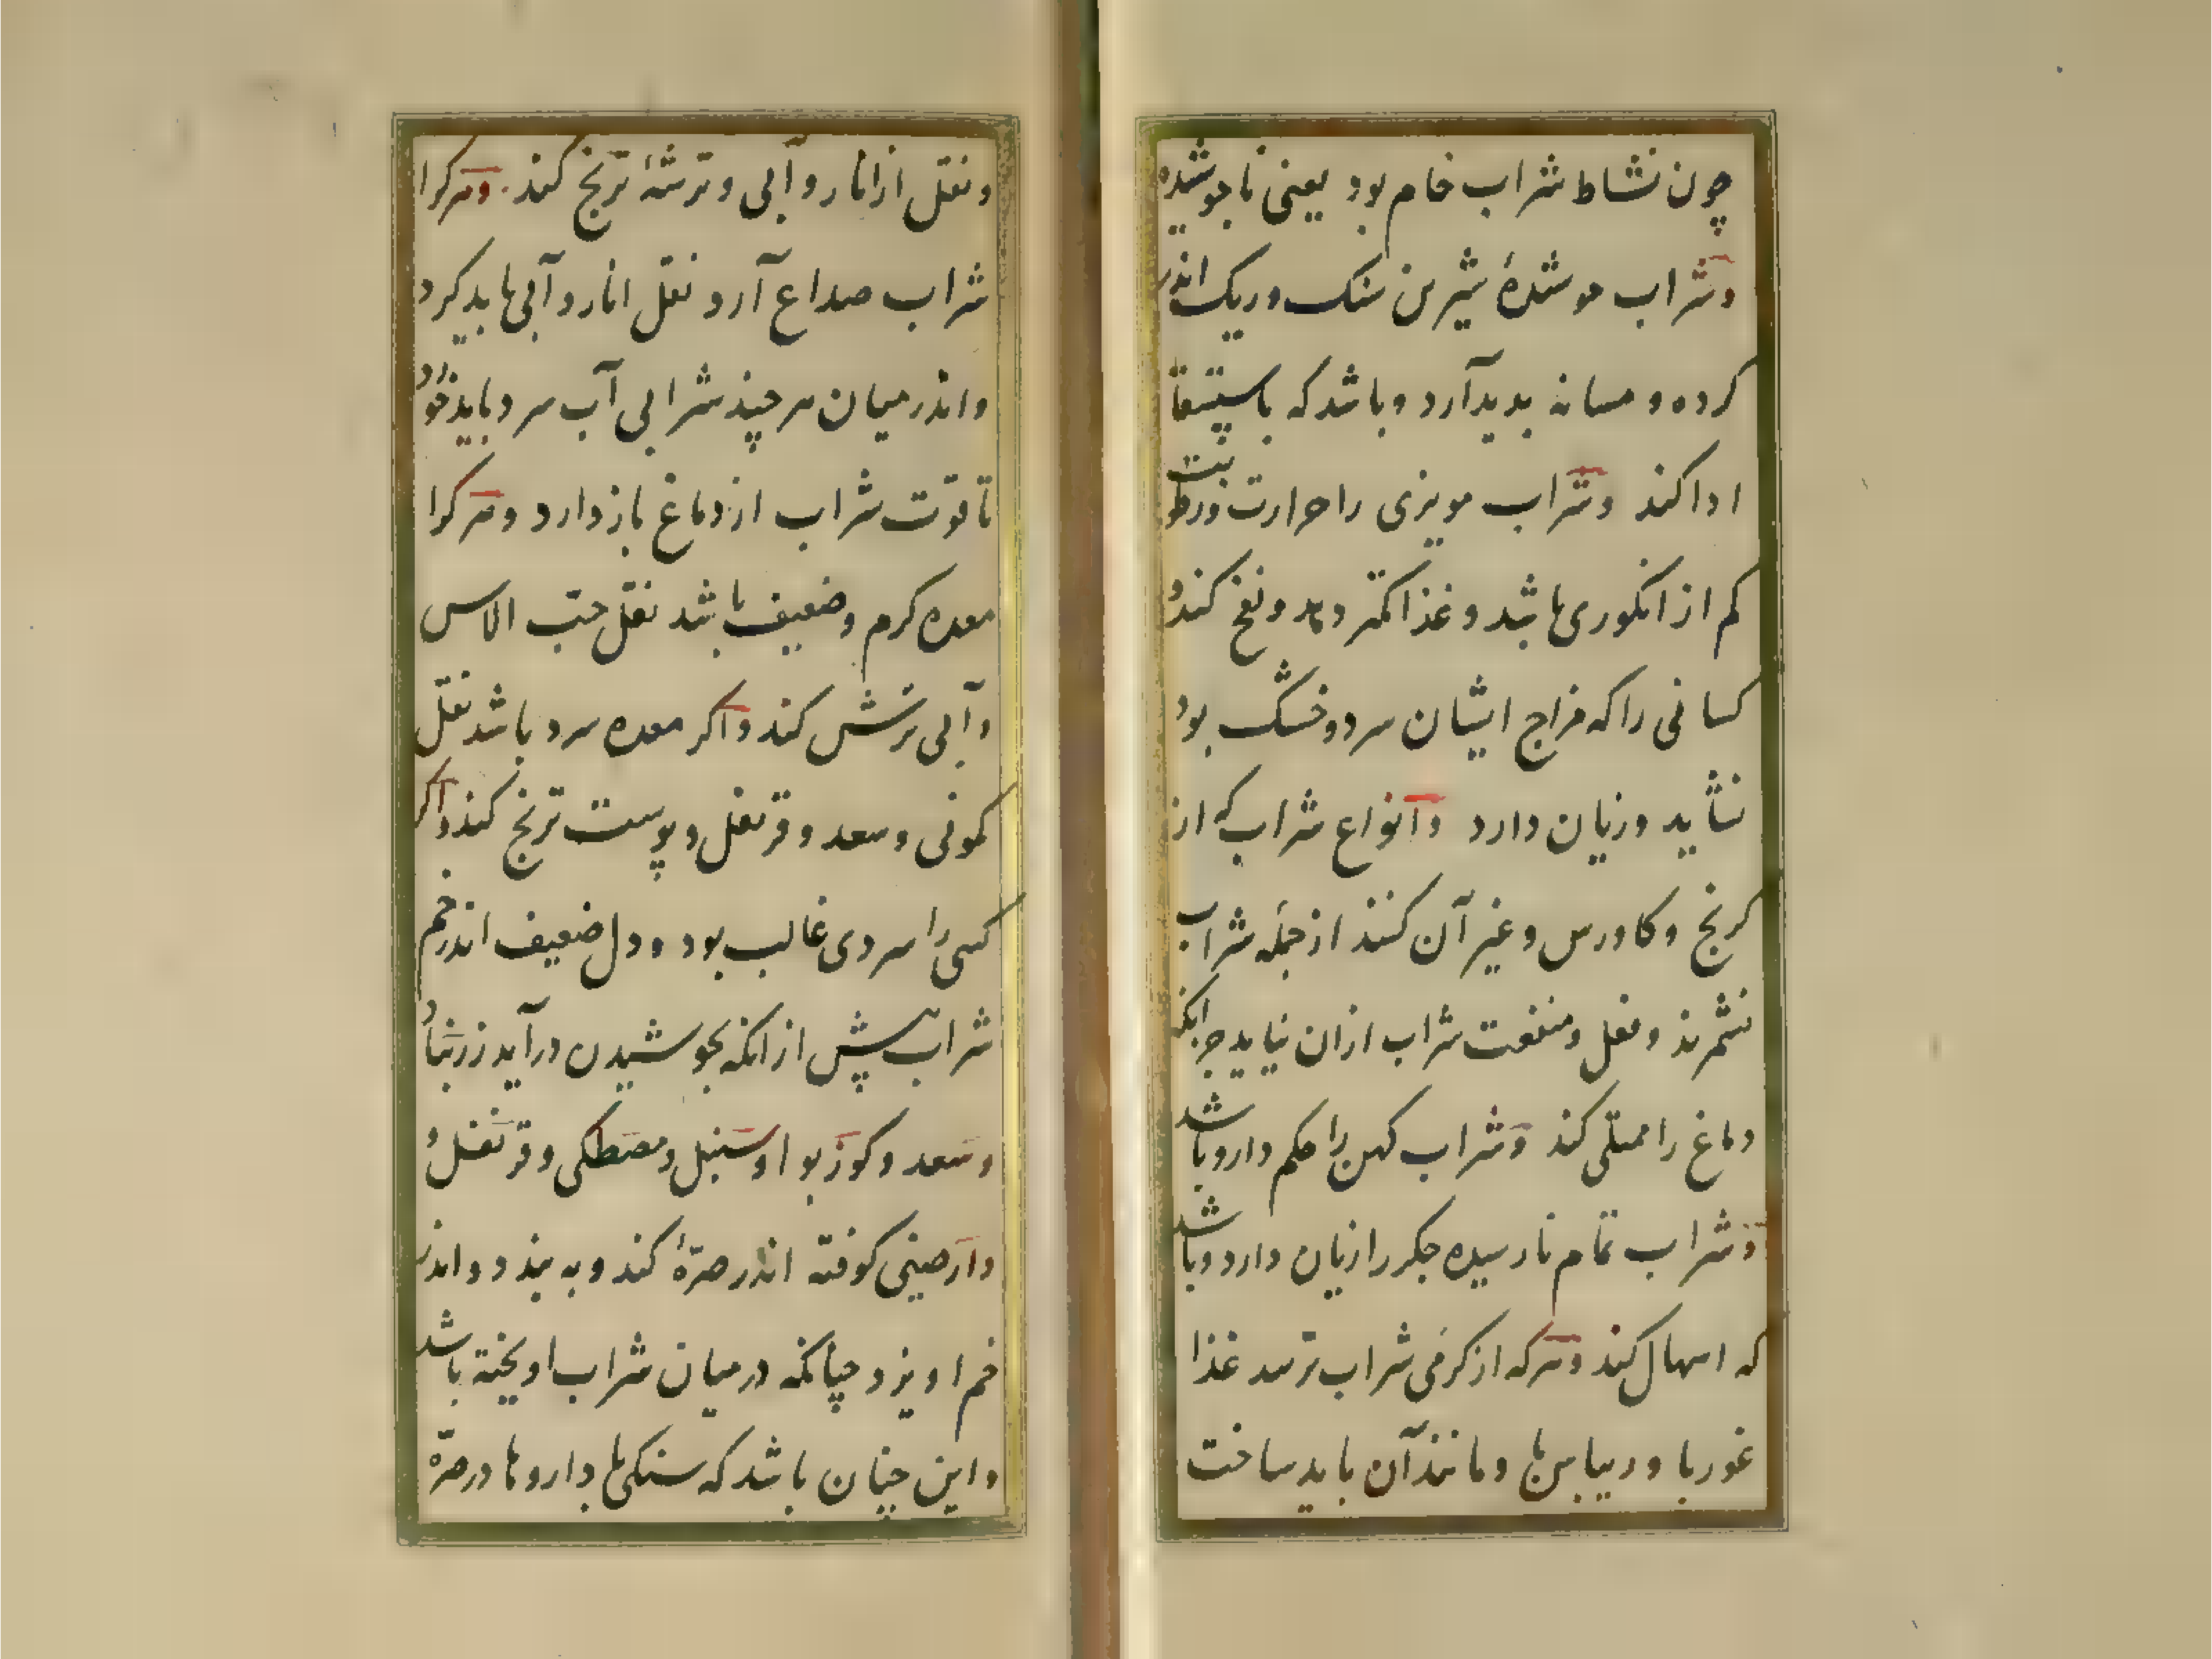 چون نشاط شراب خام بود یعنی ناجوشیده
وشراب جوشدهٔ شیرین سنک وریک اندر
کرده و مسانه بدید آرد وباشد که باستسقا
ادا کند وشراب مویزی را حرارت ورطوبت
کم از انکوری باشد و غذا کمتر دهد و نفخ کند و
کسانی را که مزاج ایشان سرد وخشک بود
نشاید وزیان دارد وانواع شراب که از
کرنج و کاورس وغیر آن کنند از جمله شراب
نشمرند وفعل ومنفعت شراب ازان نیاید جز انکه
دماغ را ممتلی کند وشراب کهن را حکم دارو باشد
وشراب تمام نارسیده جکر را زیان دارد وباشد
که اسهال کند وهرکه از کرمی شراب ترسد غذا
غوربا وریباس با ومانند آن باید ساخت
ونقل از انار و آبی وترشهٔ ترنج کند وهرکرا
شراب صداع آرد نقل انار و آبی باید کرد
واندر میان هر چند شرابی آب سرد باید خورد
تا قوّت شراب از دماغ باز دارد وهرکرا
معده کرم وضعیف باشد نقل حبّ الاس
وآبی ترش کند واکر معده سرد باشد نقل
کمونی وسعد وقرنفل وپوست ترنج کند واکر
کسی را سردی غالب بود ودل ضعیف اندر خم
شراب پیش از انکه بجوشیدن درآید زرنباد
وسعد وکوزبوا وسنبل ومصطکی وقرنفل و
دارصینی کوفته اندر صرّهٔ کند وبه بندد واندر
خم اویزد چنانکه درمیان شراب اویخته باشد
واین چنان باشد که سنکی با داروها درصرّه